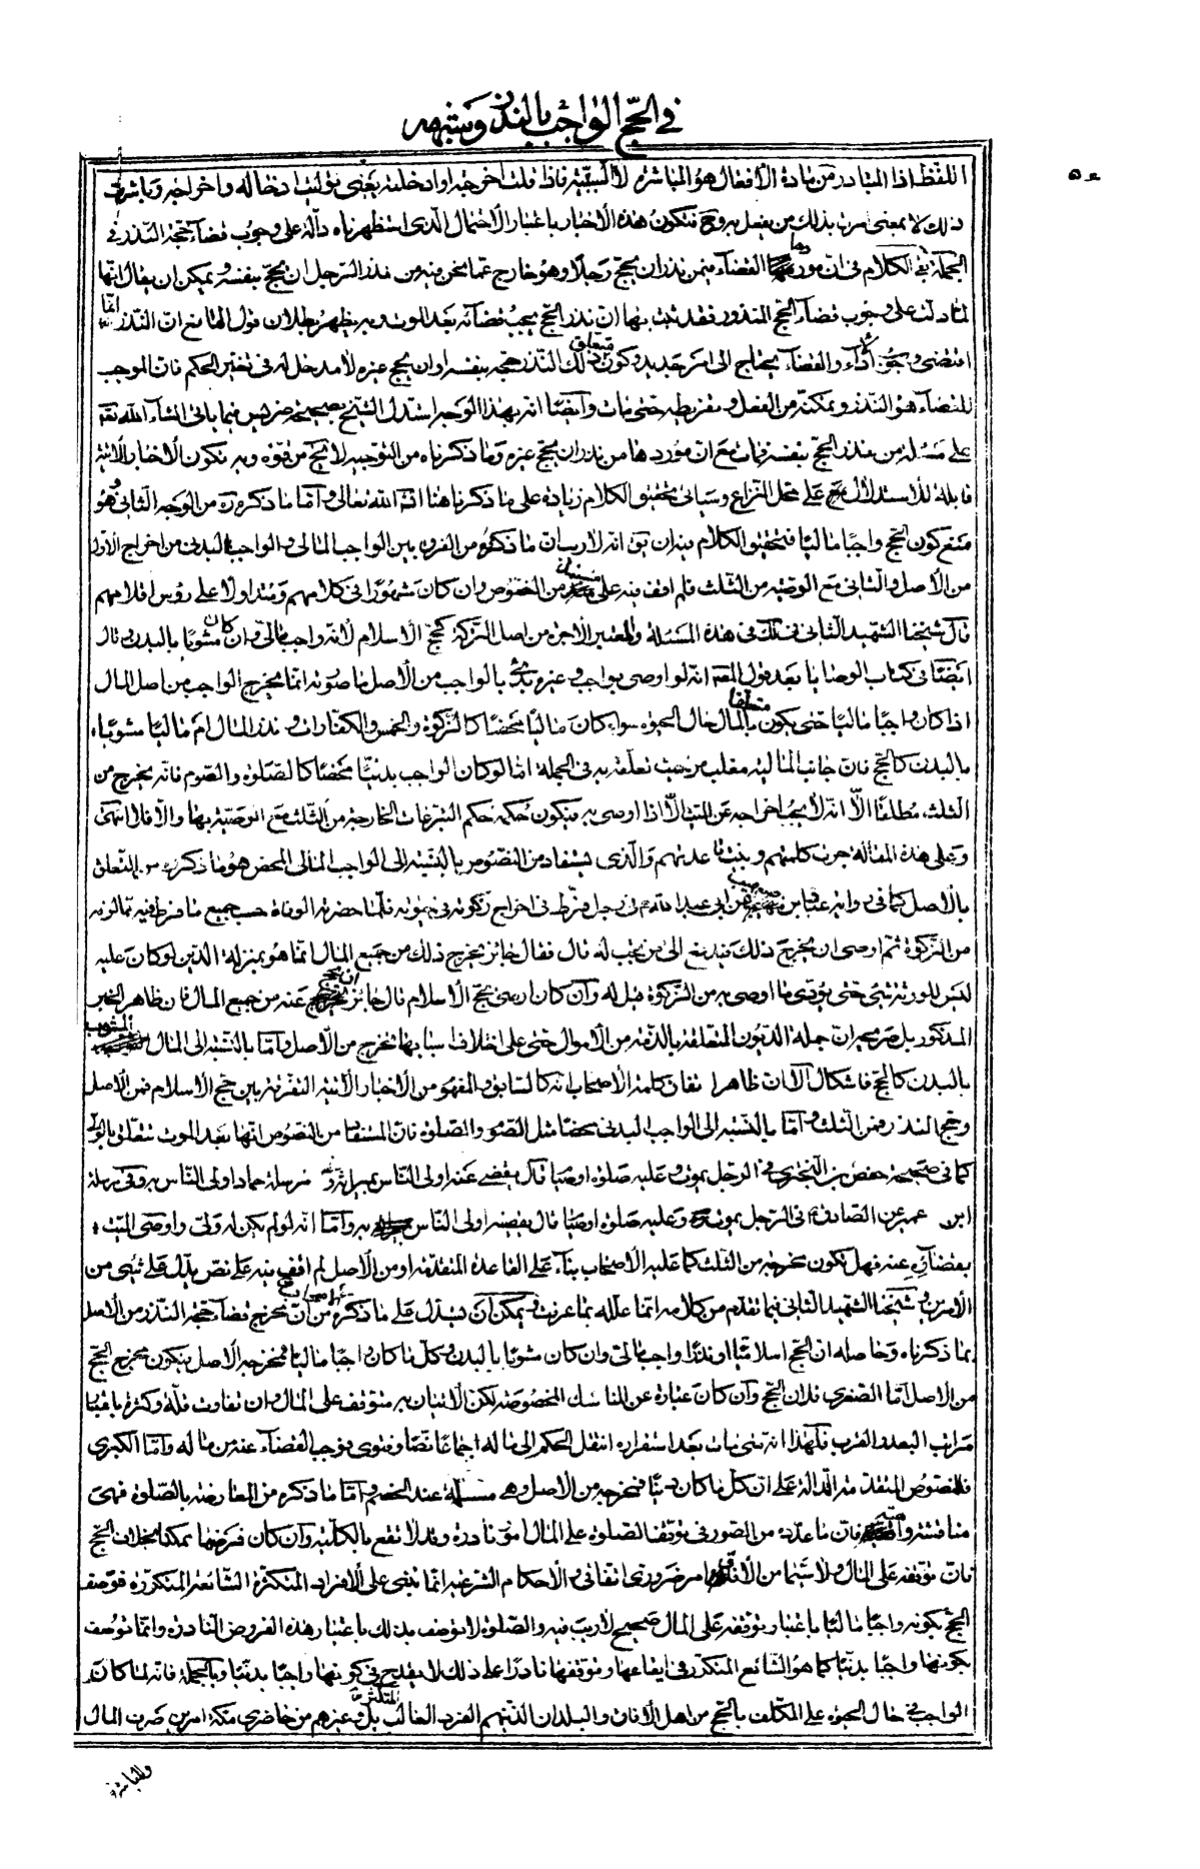 في الحج الواجب بالنذر وشبهه
اللفظ اذا المتبادر من مادة الأفعال هو المباشرة لا السببية فاذا قلت اخرجته او ادخلته يعني توليت ادخاله واخراجه وباشرت
ذلك لا بمعنى امرت بذلك من يفعل به وح فتكون هذه الأخبار باعتبار الاحتمال الذي استظهرناه دالة على وجوب قضاء حجة النذر في
الجملة بقى الكلام في ان موردها القضاء فيمن نذر ان يحج رجلا وهو خارج عما نحن فيه من نذر الرجل ان يحج بنفسه ويمكن ان يقال انها
لما دلت على وجوب قضاء الحج المنذور فقد ثبت بها ان نذر الحج يجب قضائه بعد الموت وبه يظهر بطلان قول المانع ان النذر انما
اقتضى وجوب الاداء والقضاء يحتاج الى امر جديد وكون متعلق ذلك النذر حجه بنفسه او ان يحج غيره لا مدخل له في تغيير الحكم فان الموجب
للقضاء هو النذر وتمكنه من الفعل وتفريطه حتى مات وايضا انه بهذا الوجه استدل الشيخ بصحيحة ضريس فيما ياتي انشاء الله تعالى
على مسئلة من نذر الحج بنفسه فمات مع ان موردها من نذر ان يحج غيره وما ذكرناه من التوجيه لا يخ من قوة وبه تكون الأخبار الأتية
قابلة للاستدلال على محل النزاع وسياتي تحقيق الكلام زيادة على ما ذكرنا هنا انشاء الله تعالى واما ما ذكره ره من الوجه الثاني وهو
منع كون الحج واجبا ماليا فتحقيق الكلام فيه ان يق انه لا ريب ان ما ذكروه من الفرق بين الواجب المالي والواجب البدني من اخراج الأول
من الأصل والثاني مع الوصية من الثلث فلم اقف فيه على مستند من النصوص وان كان مشهورا في كلامهم ومتداولا على رؤس اقلامهم
قال شيخنا الشهيد الثاني في لك في هذه المسئلة والمعتبر الاجرة من اصل التركة كحج الاسلام لانه واجب مالي وان كان مشوبا بالبدن وقال
ايضا في كتاب الوصايا بعد قول المصنف انه لو اوصى بواجب وغيره بدئ بالواجب من الأصل ما صورته انما يخرج الواجب من اصل المال
اذا كان واجبا ماليا حتى يكون متعلقا بالمال حال الحيوة سواء كان ماليا محضا كالزكوة والخمس والكفارات ونذر المال ام ماليا مشوبا
بالبدن كالحج فان جانب المالية مغلب من حيث تعلقه به في الجملة اما لو كان الواجب بدنيا محضا كالصلوة والصوم فانه يخرج من
الثلث مطلقا الا انه لا يجب اخراجه عن الميت الا اذا اوصى به فيكون حكمه حكم التبرعات الخارجة من الثلث مع الوصية بها والا فلا انتهى
وعلى هذه المقالة جرت كلمتهم وبنيت قاعدتهم والذي يستفاد من النصوص بالنسبة الى الواجب المالي المحض هو ما ذكروه من التعلق
بالأصل كما في رواية عباد بن صهيب عن ابي عبد الله ع في رجل فرط في اخراج زكوته في حيوته فلما حضرته الوفاة حسب جميع ما فرط فيه مما لزمه
من الزكوة ثم اوصى ان يخرج ذلك فيدفع الى من يجب له قال فقال جائز يخرج ذلك من جميع المال انما هو بمنزلة الدين لو كان عليه
ليس للورثة شئ حتى يؤدي ما اوصى به من الزكوة قيل له وان كان اوصى بحج الاسلام قال جائز ان يحج عنه من جميع المال فان ظاهر الخبر
المذكور بل صريحه ان جملة الديون المتعلقة بالذمة من الأموال حتى على اختلاف اسبابها تخرج من الأصل واما بالنسبة الى المال المشوب
بالبدن كالحج فاشكال الا ان ظاهر اتفاق كلمة الأصحاب انه كالسابق والمفهوم من الأخبار الأتية التفرقة بين حج الاسلام فمن الأصل
وحج النذر فمن الثلث واما بالنسبة الى الواجب البدني محضا مثل الصوم والصلوة فان المستفاد من النصوص انها بعد الموت تتعلق بالولي
كما في صحيحة حفص بن البختري في الرجل يموت وعليه صلوة او صيام قال يقضي عنه اولى الناس بميراثه ومرسلة حماد اولى الناس به وفي مرسلة
ابن عمير عن الصادق ع في الرجل يموت وعليه صلوة او صيام قال يقضيه اولى الناس به واما انه لو لم يكن له ولي واوصى الميت
بقضائه عنه فهل تكون مخرجة من الثلث كما عليه الأصحاب بناء على القاعدة المتقدمة او من الأصل لم اقف فيه على نص يدل على شئ من
الأمرين وشيخنا الشهيد الثاني فيما تقدم من كلامه انما علله بما عرفت يمكن ان يستدل على ما ذكره الاصحاب من ان مخرج قضاء حجة النذر من الأصل
بما ذكرناه وحاصله ان الحج اسلاميا او نذرا واجب مالي وان كان مشوبا بالبدن وكل ما كان واجبا ماليا فمخرجه الأصل فيكون مخرج الحج
من الأصل اما الصغرى فلان الحج وان كان عبارة عن المناسك المخصوصة لكن الاتيان به متوقف على المال وان تفاوت قلة وكثرة باعتبار
مراتب البعد والقرب ولهذا انه متى مات بعد استقراره انتقل الحكم الى ماله اجماعا نصا وفتوى فوجب القضاء عنه من ماله واما الكبرى
فللنصوص المتقدمة الدالة على ان كل ما كان دينا فمخرجه من الأصل وهي مسلمة عند الخصم واما ما ذكره من المعارضة بالصلوة فهي
مناقشة واهية فان ما عدده من الصور في توقف الصلوة على المال امور نادرة وقد لا تقع بالكلية وان كان فرضها ممكنا بخلاف الحج
فان توقفه على المال ولا سيما من الافاق امر ضروري اتفاقي والأحكام الشرعية انما تبنى على الأفراد المتكثرة الشائعة المتكررة فوصف
الحج بكونه واجبا ماليا باعتبار توقفه على المال صحيح لا ريب فيه والصلوة لا توصف بذلك باعتبار هذه الفروض النادرة وانما توصف
بكونها واجبا بدنيا كما هو الشائع المتكرر في ايقاعها وتوقفها نادرا على ذلك لا يقدح في كونها واجبا بدنيا وبالجملة فانه لما كان
الواجب في حال الحيوة على المكلف بالحج من اهل الأفاق والبلدان الذين هم الفرد الغالب المتكثر بل وغيرهم من حاضري مكة امرين صرف المال
والمباشرة